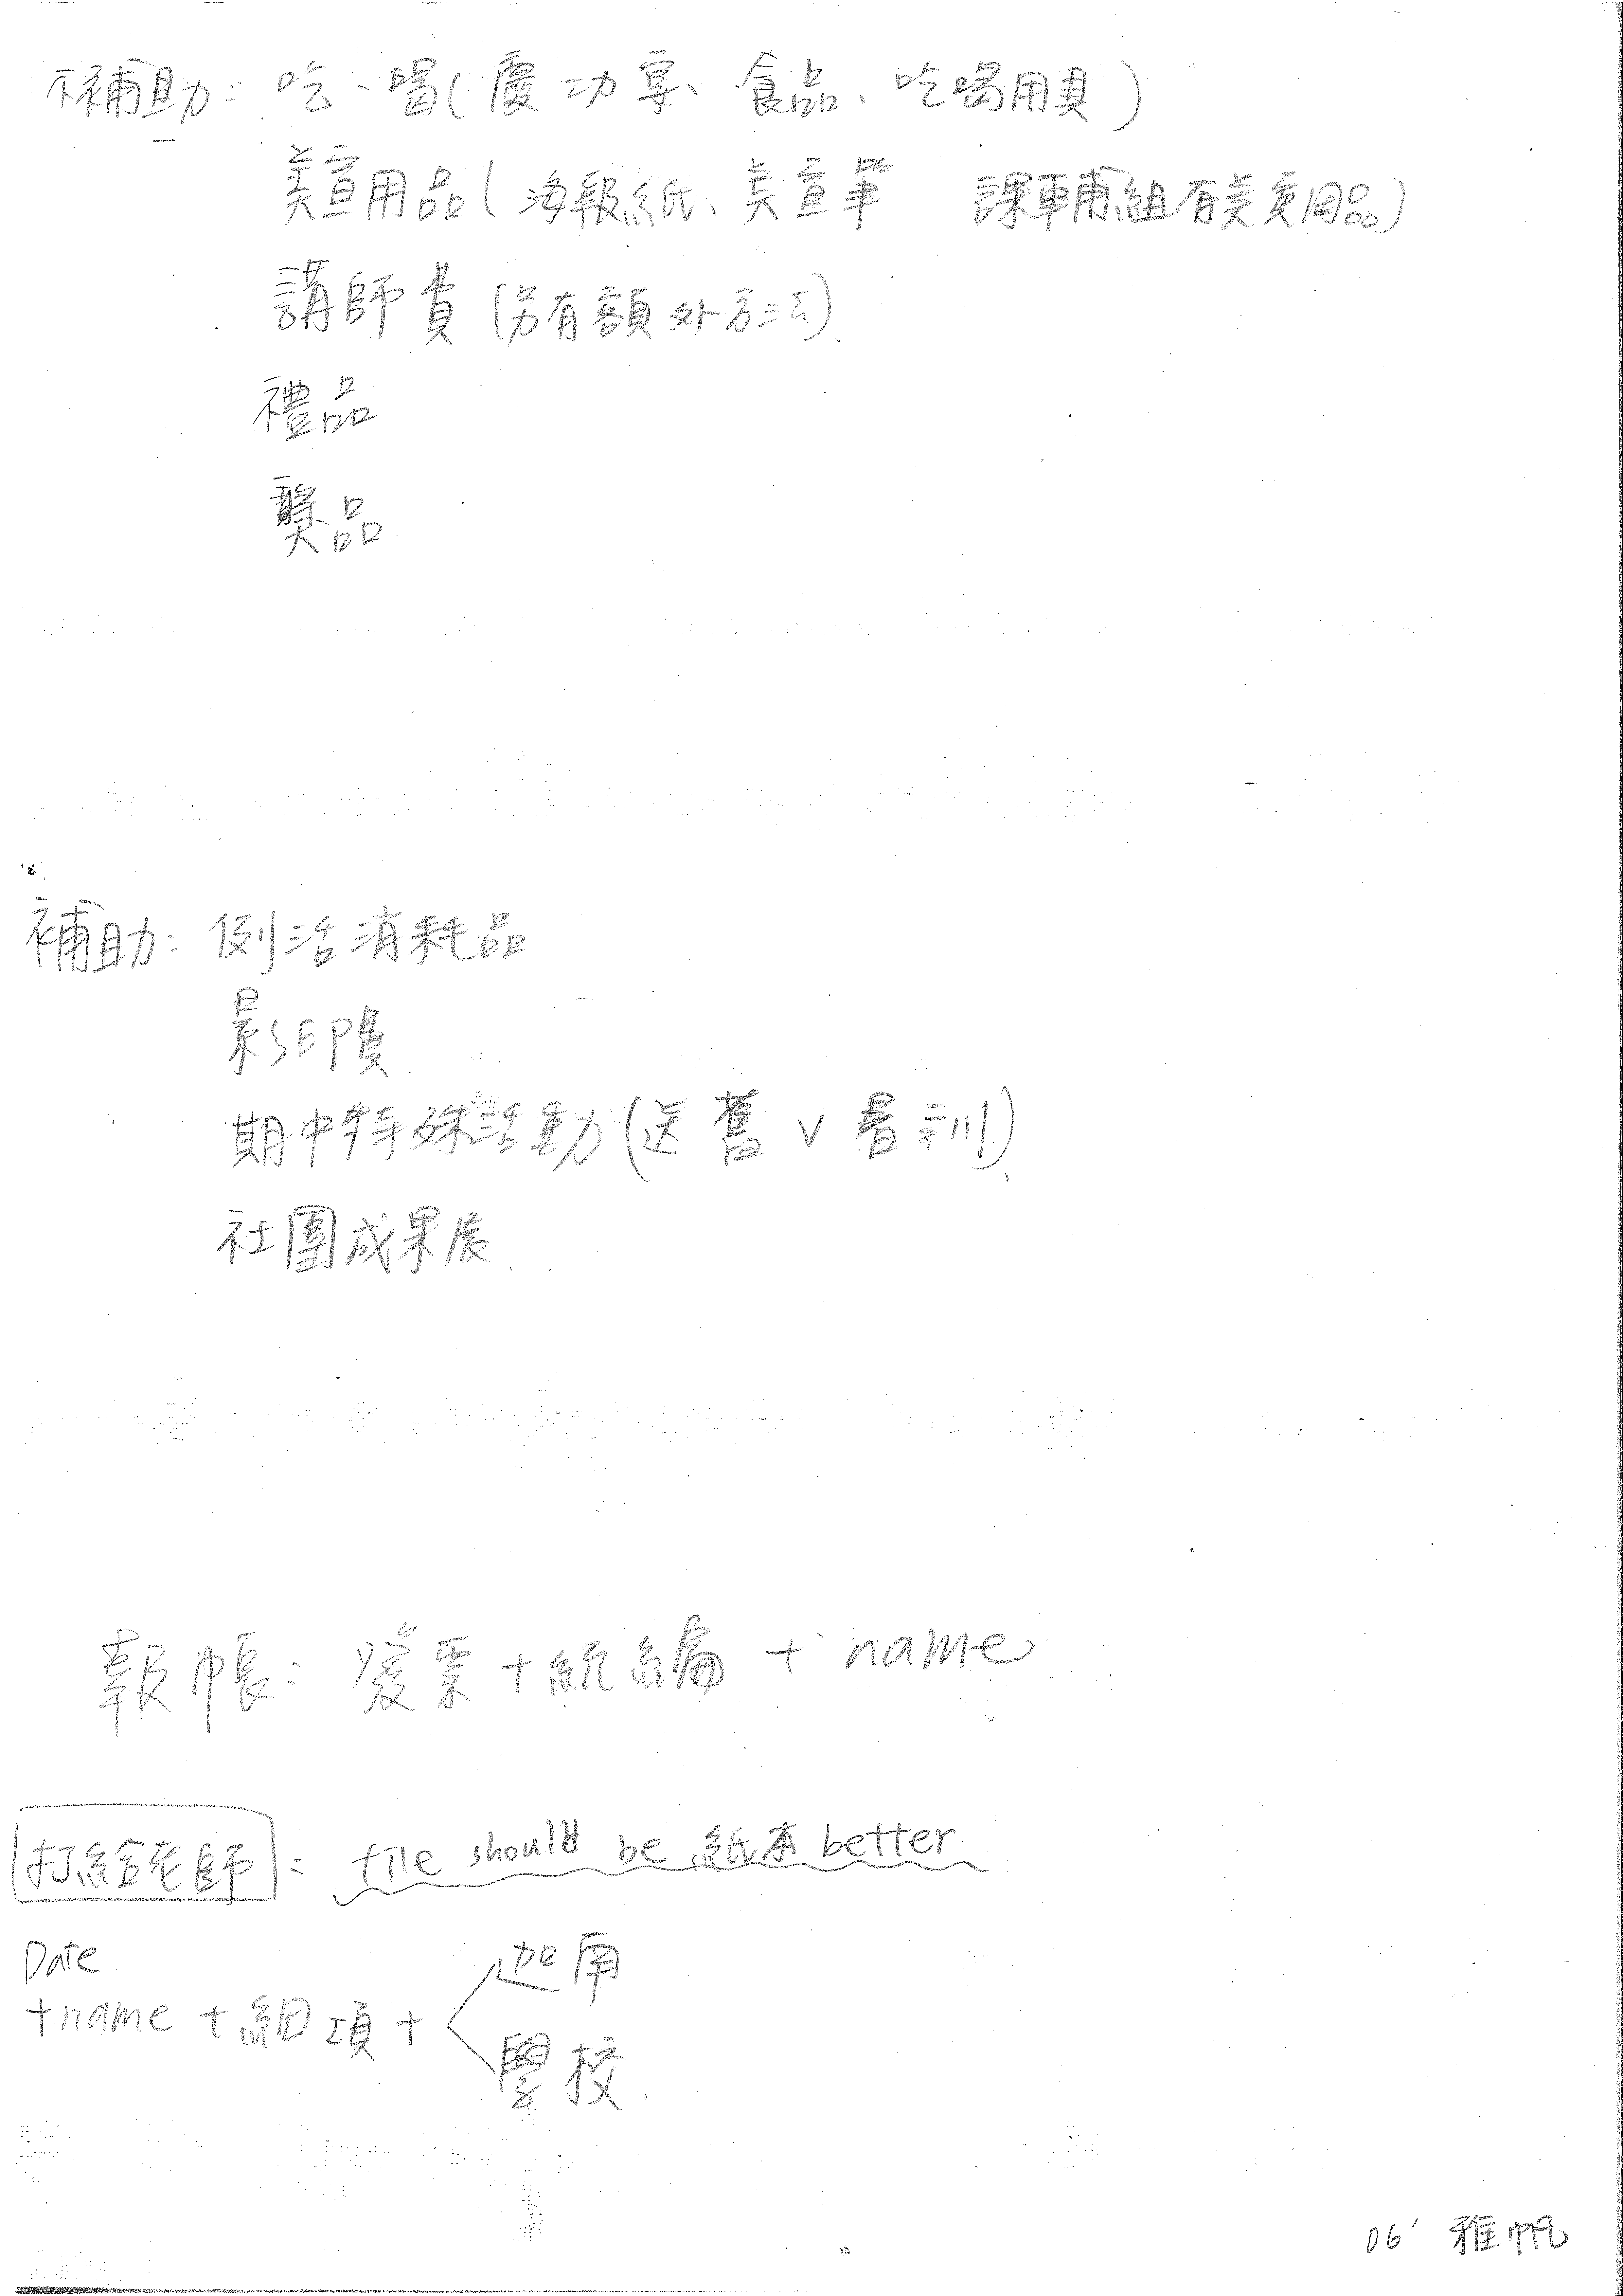 不補助：吃、喝（慶功宴、食品、吃喝用具）
美宣用品（海報紙、美宣筆 課輔組有美宣用品）
講師費（另有額外方法）
禮品
獎品
補助：例活消耗品
影印費
期中特殊活動（送舊 v 暑訓）
社團成果展
報帳：發票+統編 + name
打給老師：file should be 紙本 better
Date
+name +細項 + 迦南
學校
06' 雅帆